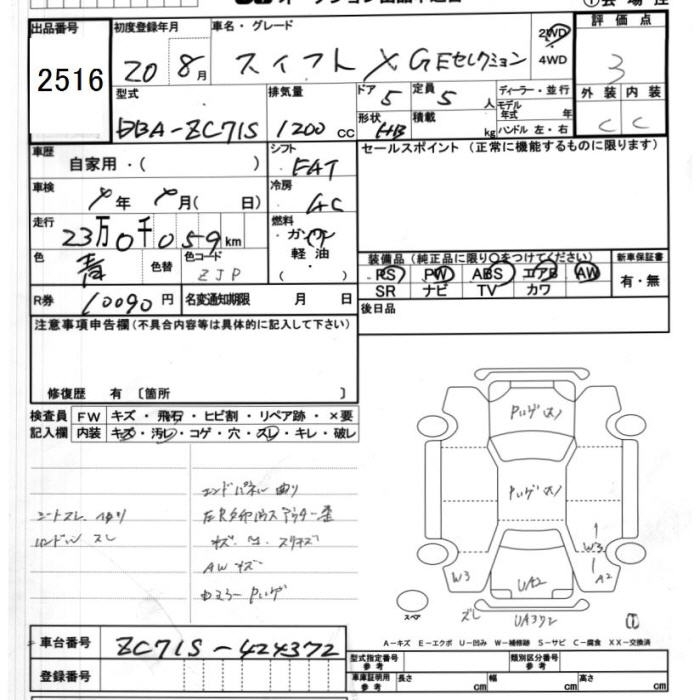 出品番号
2516
初度登録年月
20 8月
車名・グレード
スイフト X GEセレクション
2WD
4WD
評価点
3
外装 内装
C C
型式
DBA-ZC71S
排気量
1200 CC
ドア 5
形状 HB
定員 5 人
積載 kg
ディーラー・並行
モデル年式 年
ハンドル 左・右
車歴
自家用・( )
シフト
FAT
セールスポイント (正常に機能するものに限ります)
車検
年 月( 日)
冷房
AC
走行
23万0千059km
燃料
ガソリン
軽油
・( )
色
青
色替
色コード
ZJP
装備品 (純正品に限り○をつけてください)
PS PW ABS エアB AW
SR ナビ TV カワ
新車保証書
有・無
R券
10090円
名変通知期限 月 日
後日品
注意事項申告欄(不具合内容等は具体的に記入して下さい)
修復歴 有 〔箇所 〕
検査員
記入欄
FW キズ・飛石・ヒビ割・リペア跡・×要
内装 キズ・汚レ・コゲ・穴・スレ・キレ・破レ
エンドパネル曲り
シートスレ
ハンドルスレ
AWキズ
W3
W3
A2
UA2
スレ
UA3ヶ2
スペア
A-キズ E-エクボ U-凹み W-補修跡 S-サビ C-腐食 XX-交換済
車台番号
ZC71S-424372
登録番号
型式指定番号
参考
類別区分番号
参考
車庫証明用
参考
長さ cm
幅 cm
高さ cm